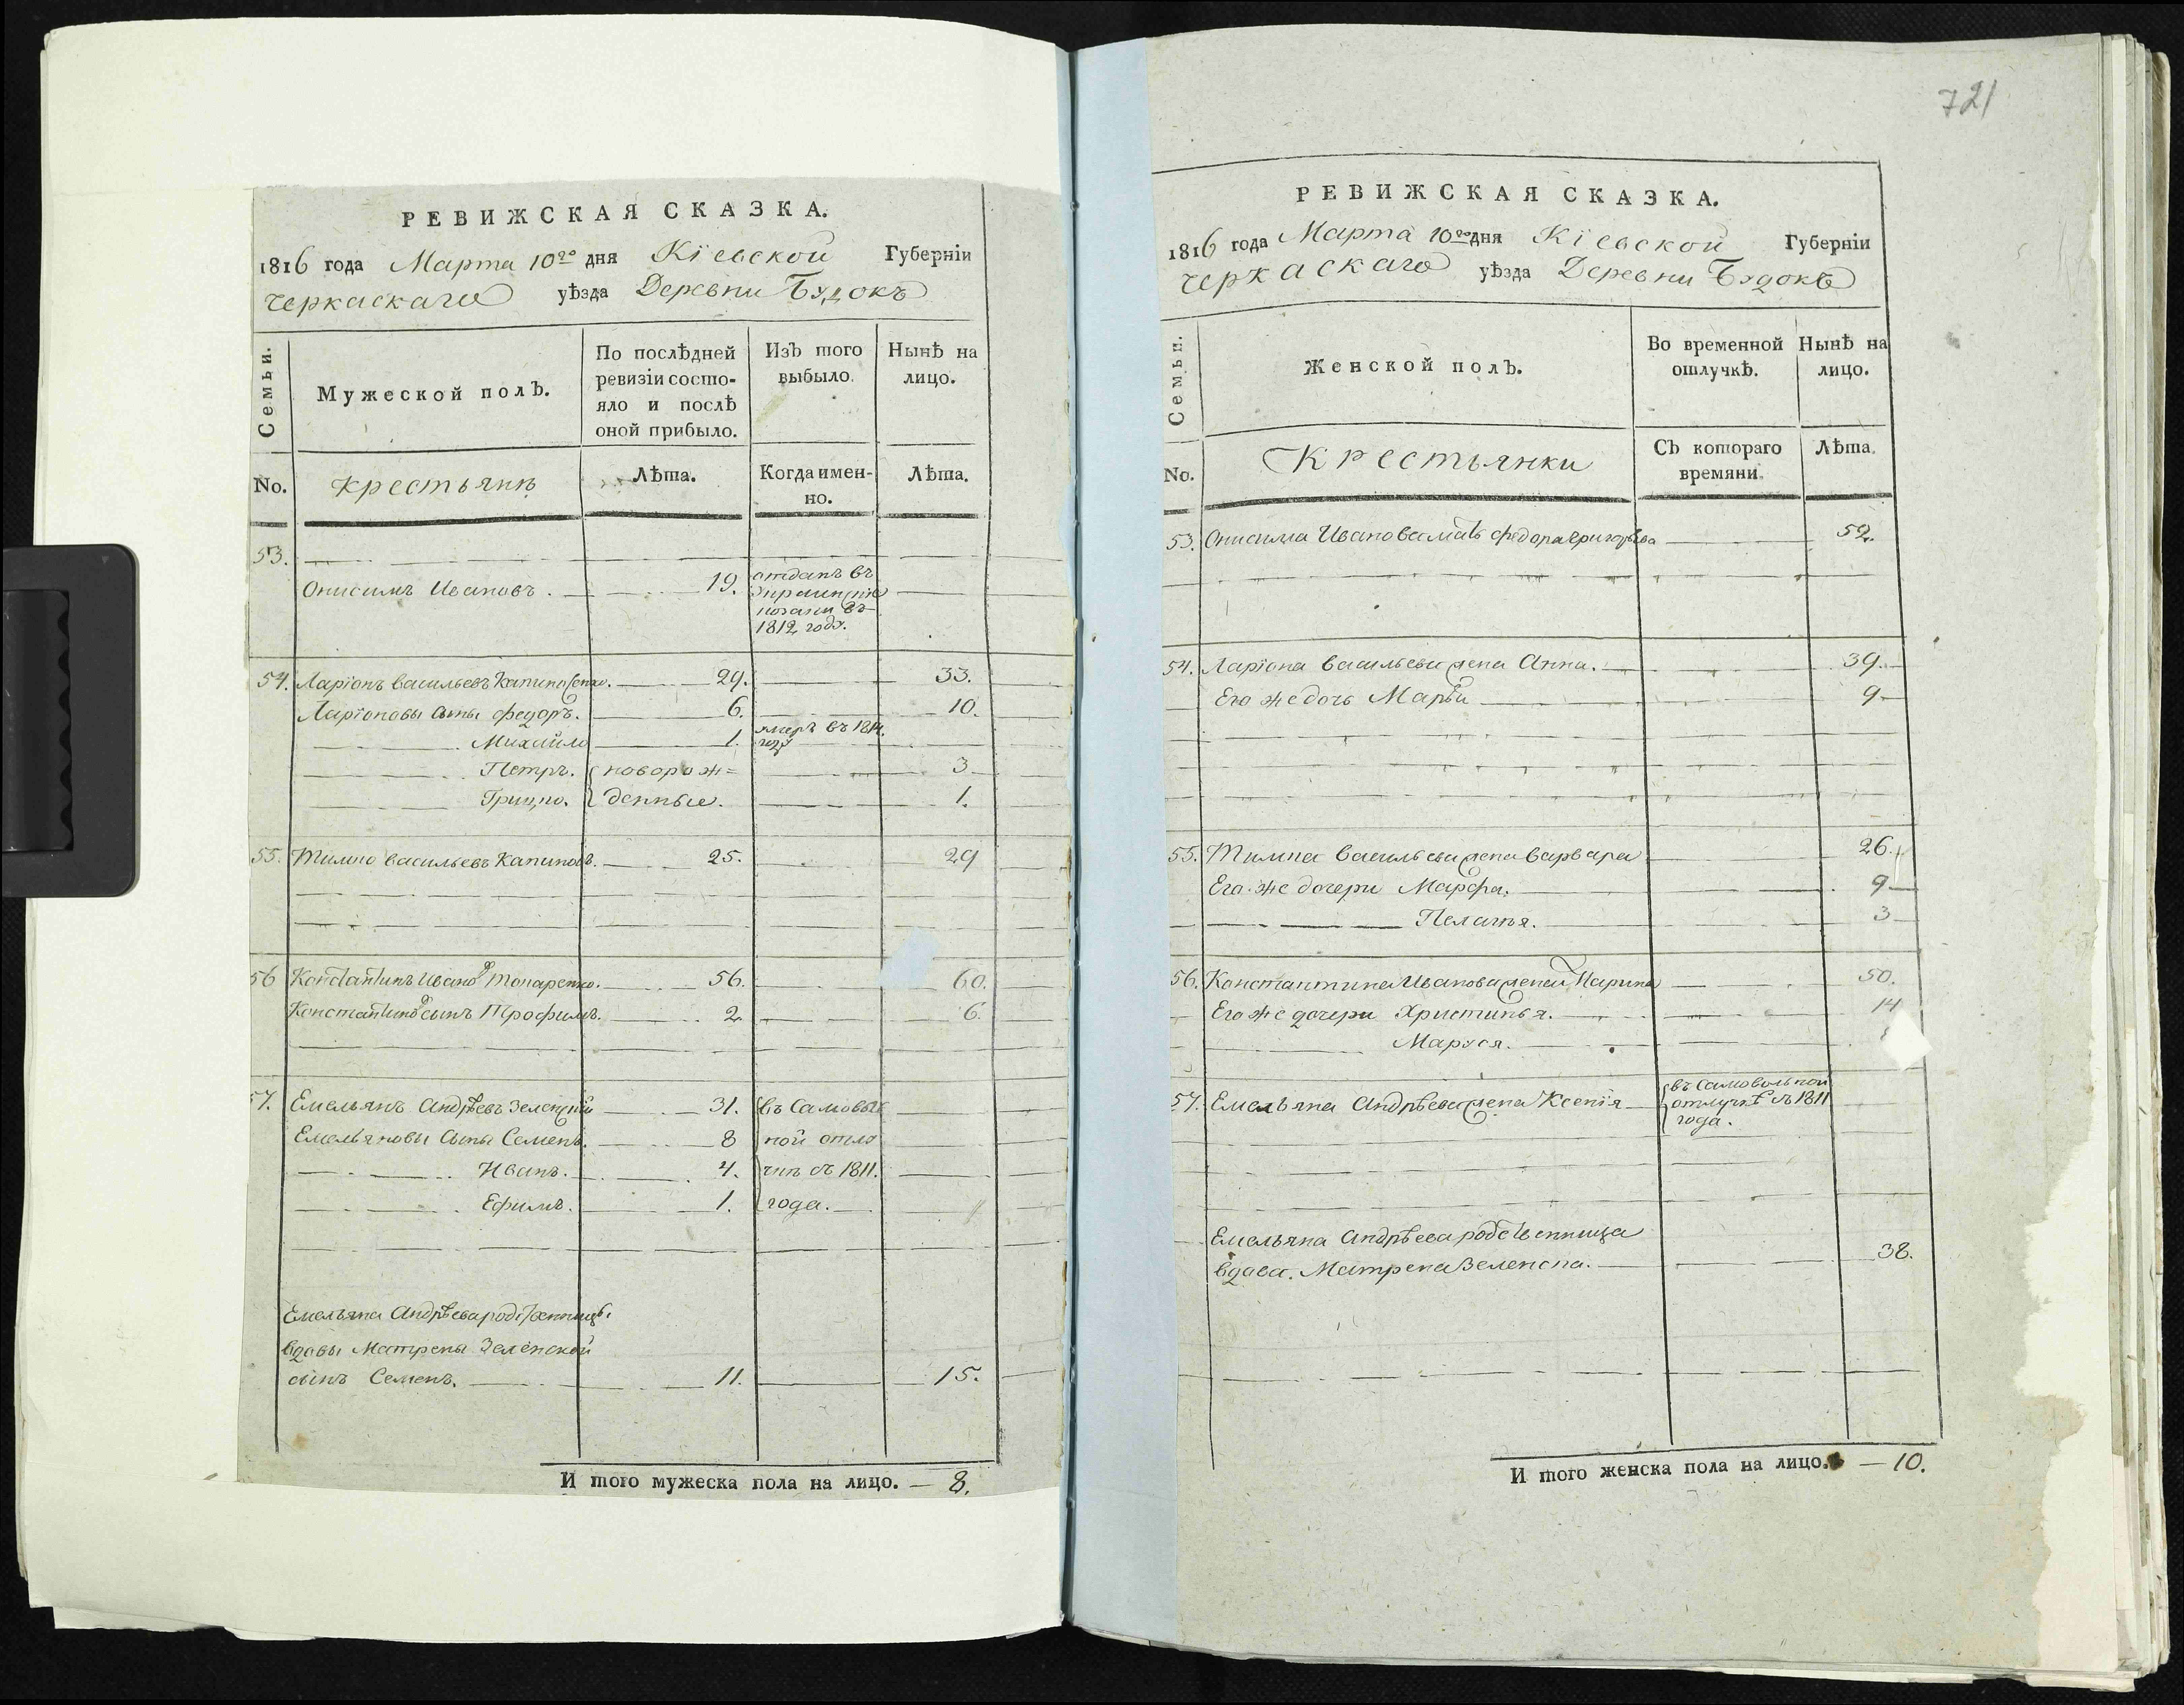 721
РЕВИЖСКАЯ СКАЗКА.
1816 года Марта 10го дня Кіевской Губерніи
Черкаскаго уѣзда Деревни Будокъ
Семьи.
Мужеской полЪ.
По послѣдней ревизіи состо-
яло и послѣ оной прибыло.
ИзЪ того выбыло.
НынѢ на лицо.
No.
крестьянѣ
ЛѢта.
Когда имен-
но.
ЛѢта.
53.
Онисимъ Ивановъ. 19. отданъ въ
козаки въ
1812 году.
54. Ларіонъ Васильевъ 29. 33.
Ларіоновы сыны Федоръ. 6. 10.
Михайло 1. умеръ въ 1814.
году
Петръ. новорож= 3
Грицко. денные. 1.
55. Тимко Васильевъ 25. 29
56 Константинъ Ивановъ 56. 60.
Константиновъ сынъ Трофимъ. 2. 6.
57. Емельянъ Андрѣевъ Зеленскій 31. въ Самоволь
Емельяновы сыны Семенъ. 8 ной отлу
Иванъ. 4. чкѣ съ 1811.
Ефимъ. 1. года.
Емельяна Андрѣева родственницы
вдовы Матрены Зеленской
сынъ Семенъ. 11. 15.
И того мужеска пола на лицо. — 8.
РЕВИЖСКАЯ СКАЗКА.
1816 года Марта 10го дня Кіевской Губерніи
Черкаскаго уѣзда Деревни Будокъ
Семьи.
Женской полЪ.
Во временной отлучкѢ.
НынѢ на лицо.
No.
Крестьянки
СЪ котораго времяни.
ЛѢта.
53. Онисима Иванова мать Федора Григорьева 52.
54. Ларіона Васильева жена Анна. 39.
Его же дочь Марья 9
55. Тимка Васильева жена Варвара 26.
Его же дочери Марфа. 9
Пелагья. 3
56. Константина Иванова жена Марина 50.
Его же дочери Христинья. 14
Маруся.
57. Емельяна Андрѣева жена Ксенія въ Самовольной
отлучкѣ съ 1811
года.
Емельяна Андрѣева родственница
вдова. Матрена Зеленска. 38.
И того женска пола на лицо. — 10.